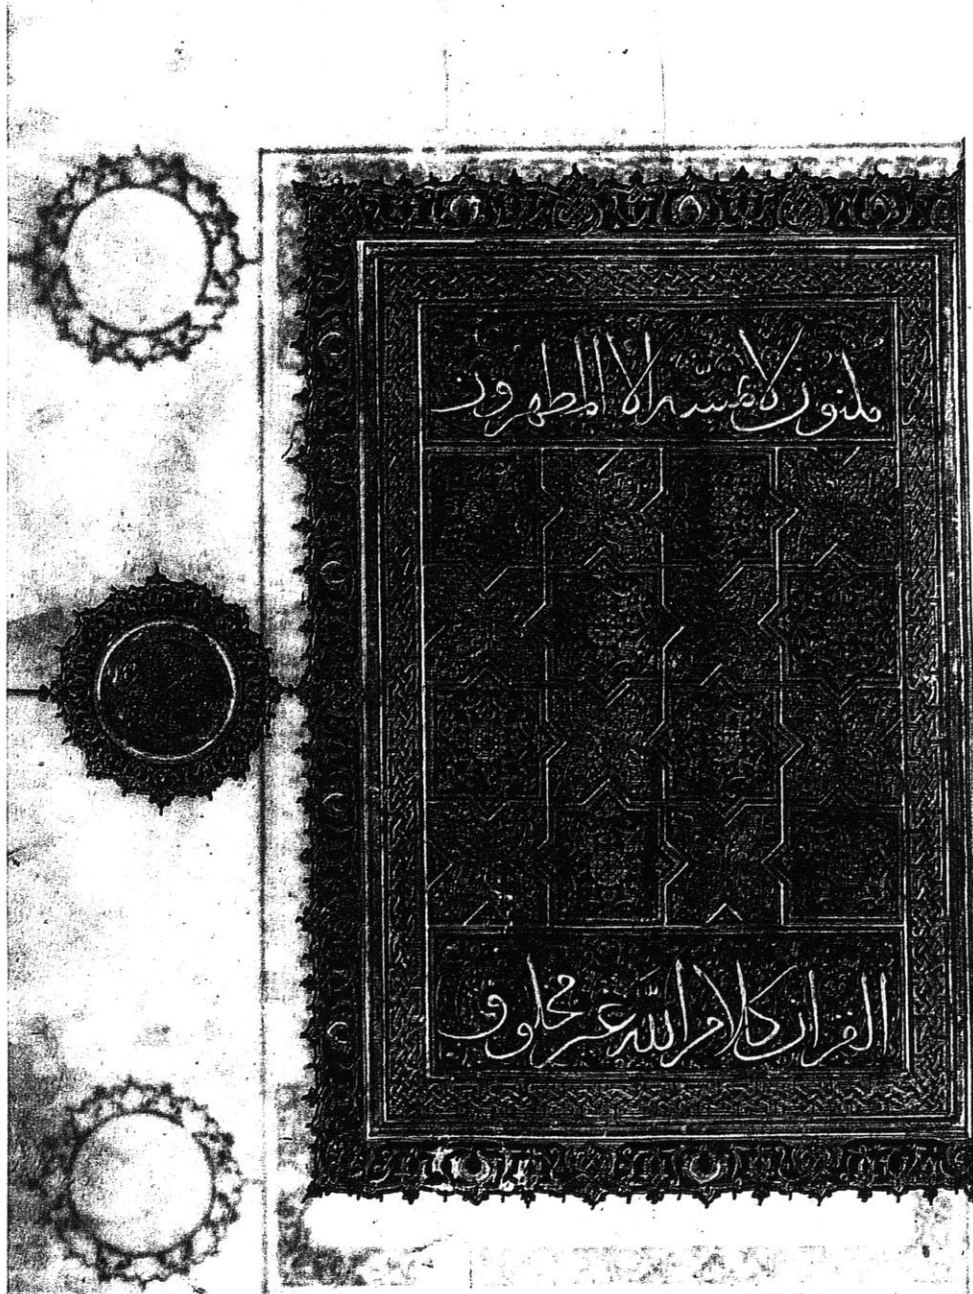 مكنون لا يمسه إلا المطهرون
القرآن كلام الله غير مخلوق